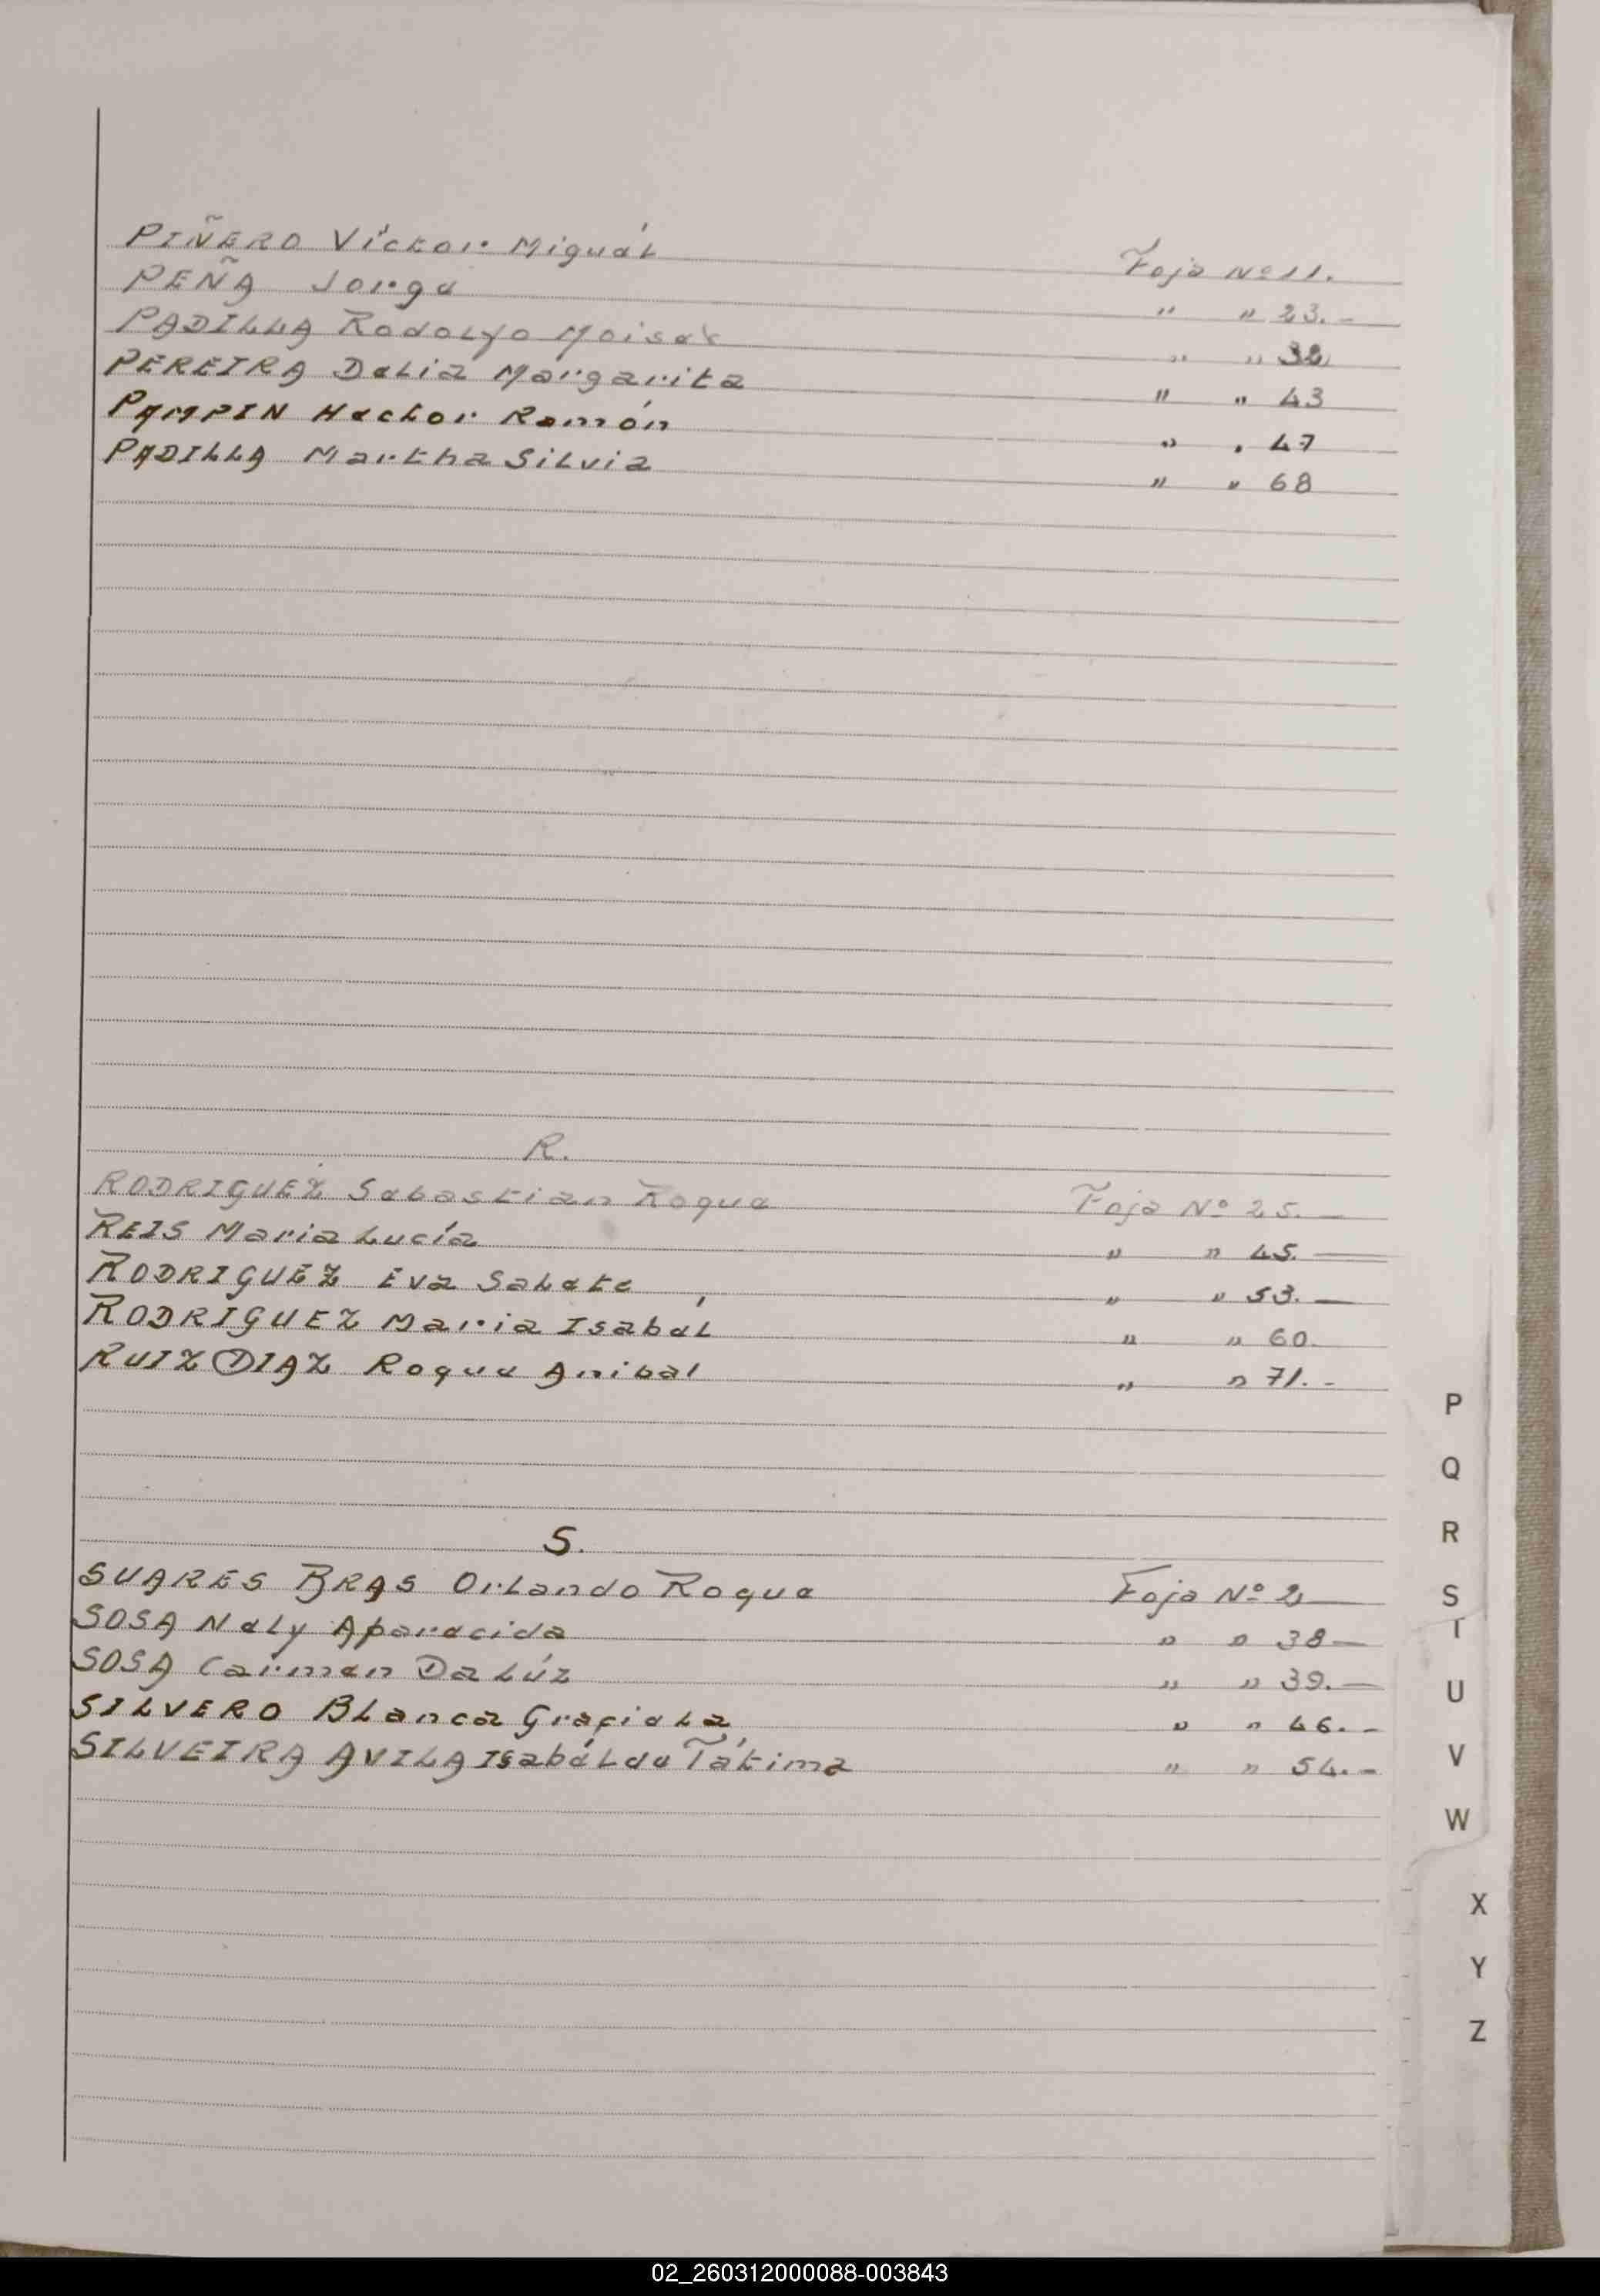 PIÑERO Víctor Miguél Foja Nº 11.
PEÑA Jorge " " 23.-
PADILLA Rodolfo Moisés " " 32
PEREIRA Delia Margarita " " 43
PAMPIN Hector Ramón " " 47
PADILLA Martha Silvia " " 68
R.
RODRIGUEZ Sebastian Roque Foja Nº 25.-
REIS Maria Lucía " " 45.-
RODRIGUEZ Eva Salete " " 53.-
RODRIGUEZ Maria Isabél " " 60.
RUIZ DIAZ Roque Anibal " " 71.-
S.
SUARES BRAS Orlando Roque Foja Nº 2
SOSA Nely Aparecida " " 38-
SOSA Carmen Da Lúz " " 39.-
SILVERO Blanca Graciela " " 46.-
SILVEIRA AVILA Isabél de Fátima " " 54.-
P
Q
R
S
T
U
V
W
X
Y
Z
02_260312000088-003843